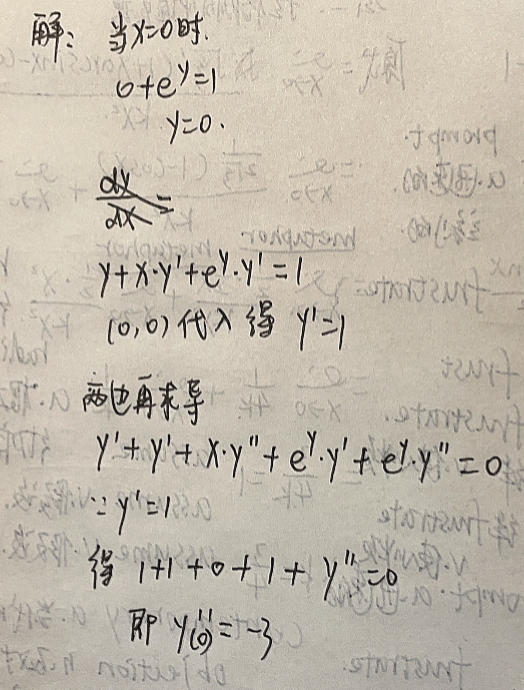 解: 当x=0时.
0+e^y=1
y=0.
dy/dx=
y+x·y'+e^y·y'=1
(0,0)代入得 y'=1
两边再求导
y'+y'+x·y''+e^y·y'+e^y·y''=0
∵y'=1
得 1+1+0+1+y''=0
即 y''(0)=-3